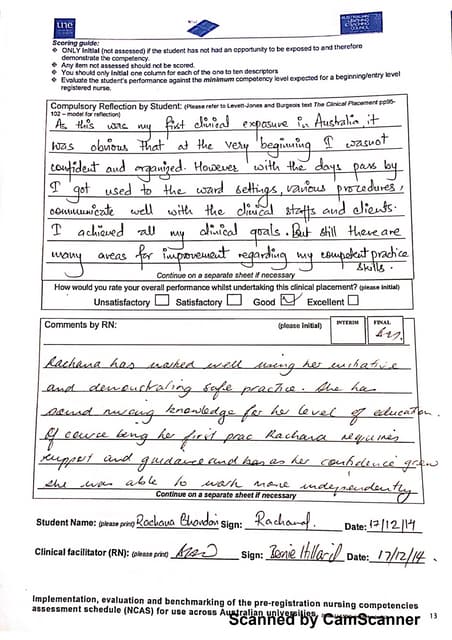 une
AUSTRALIAN
LEARNING
TEACHING
COUNCIL
Scoring guide:
❖ ONLY Initial (not assessed) if the student has not had an opportunity to be exposed to and therefore
demonstrate the competency.
❖ Any item not assessed should not be scored.
❖ You should only initial one column for each of the one to ten descriptors
❖ Evaluate the student's performance against the minimum competency level expected for a beginning/entry level
registered nurse.
Compulsory Reflection by Student: (Please refer to Levett-Jones and Burgeois text The Clinical Placement pp95-
102 – model for reflection)
As this was my first clinical exposure in Australia it
was obvious that at the very beginning I wasnot
confident and organized. However with the days pass by
I got used to the ward settings, various procedures,
communicate well with the clinical staffs and clients.
I achieved all my clinical goals. But still there are
many areas for improvement regarding my competent practice
skills.
Continue on a separate sheet if necessary
How would you rate your overall performance whilst undertaking this clinical placement? (please initial)
Unsatisfactory Satisfactory Good ✓ Excellent
Comments by RN: (please Initial) INTERIM FINAL
Rachana has worked well using her initiative
and demonstrating safe practice. She has
sound nursing knowledge for her level of education.
Of course being her first prac Rachana requires
support and guidance and as her confidence grew
she was able to work more independently
Continue on a separate sheet if necessary
Student Name: (please print) Rachana Sign: Rachana. Date: 17/12/14
Clinical facilitator (RN): (please print) Sign: Date: 17/12/14.
Implementation, evaluation and benchmarking of the pre-registration nursing competencies
assessment schedule (NCAS) for use across Australian universities.
13
Scanned by CamScanner